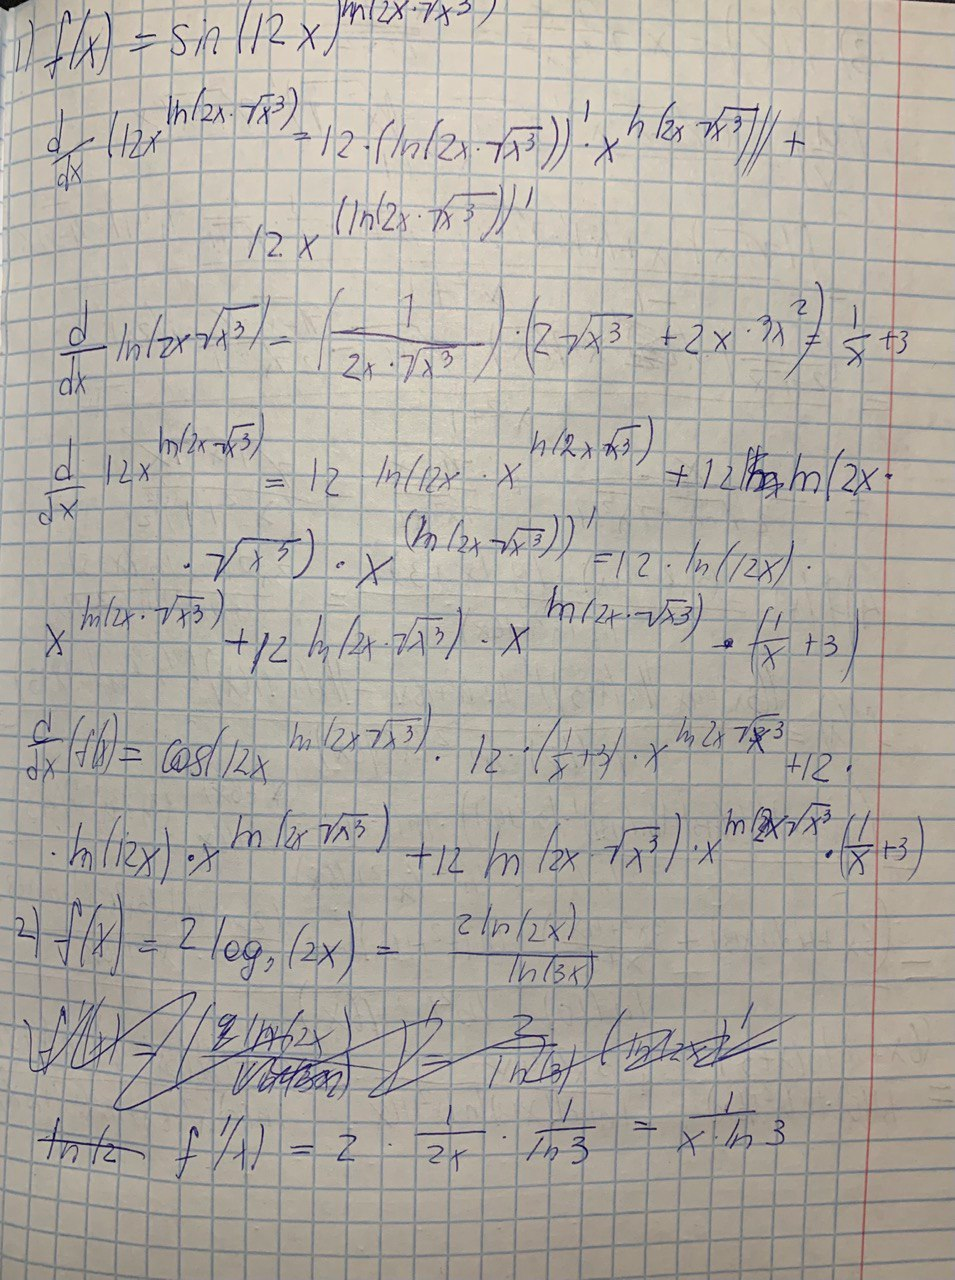 1) f(x) = sin(12x)^ln(2x·√x³)
d/dx (12x^ln(2x·√x³) = 12·(ln(2x·√x³))'·x^ln(2x·√x³) +
12x^(ln(2x·√x³))'
d/dx ln(2x√x³) = (1/(2x·√x³))·(2√x³ + 2x·3x²) = 1/x + 3
d/dx 12x^ln(2x·√x³) = 12 ln(12x · x^ln(2x·√x³) + 12 ln(2x·
·√x³)·x^(ln(2x·√x³))' = 12·ln(12x)·
x^ln(2x·√x³) + 12 ln(2x·√x³)·x^ln(2x·√x³)·(1/x + 3)
d/dx (f(x) = cos(12x^ln(2x√x³)·12·(1/x+3)·x^ln2x√x³ + 12·
·ln(12x)·x^ln(2x·√x³) + 12 ln(2x·√x³)·x^ln(2x√x³·(1/x + 3)
2) f(x) = 2 log₃(2x) = 2ln(2x)/ln(3x)
f'(x) = 2·1/2x·1/ln3 = 1/x·ln3